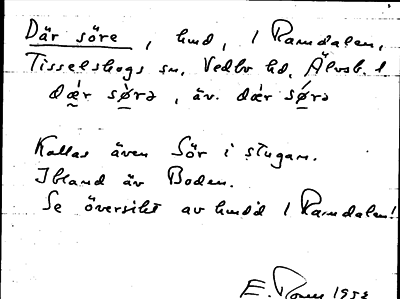 Där söre, hmd, i Ramdalen,
Tisselskogs sn, Vedbo hd, Älvsb. l
dǽr sø̀rə, äv. dǽr sǿrə
Kallas även Sör i stugan.
Ibland äv Boden.
Se översikt av hmd'd i Ramdalen!
E. 1952